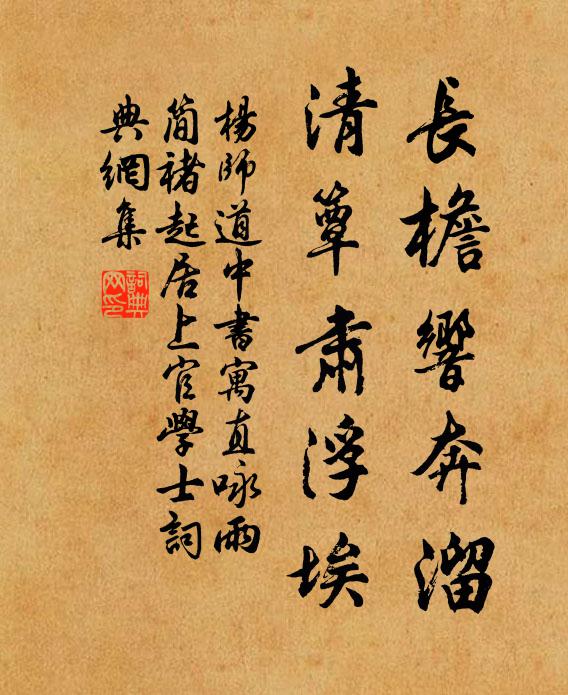 長檐響奔溜
清簟肅浮埃
楊師道中書寓直咏雨
簡褚起居上官學士詞
典網集
詞典
网印